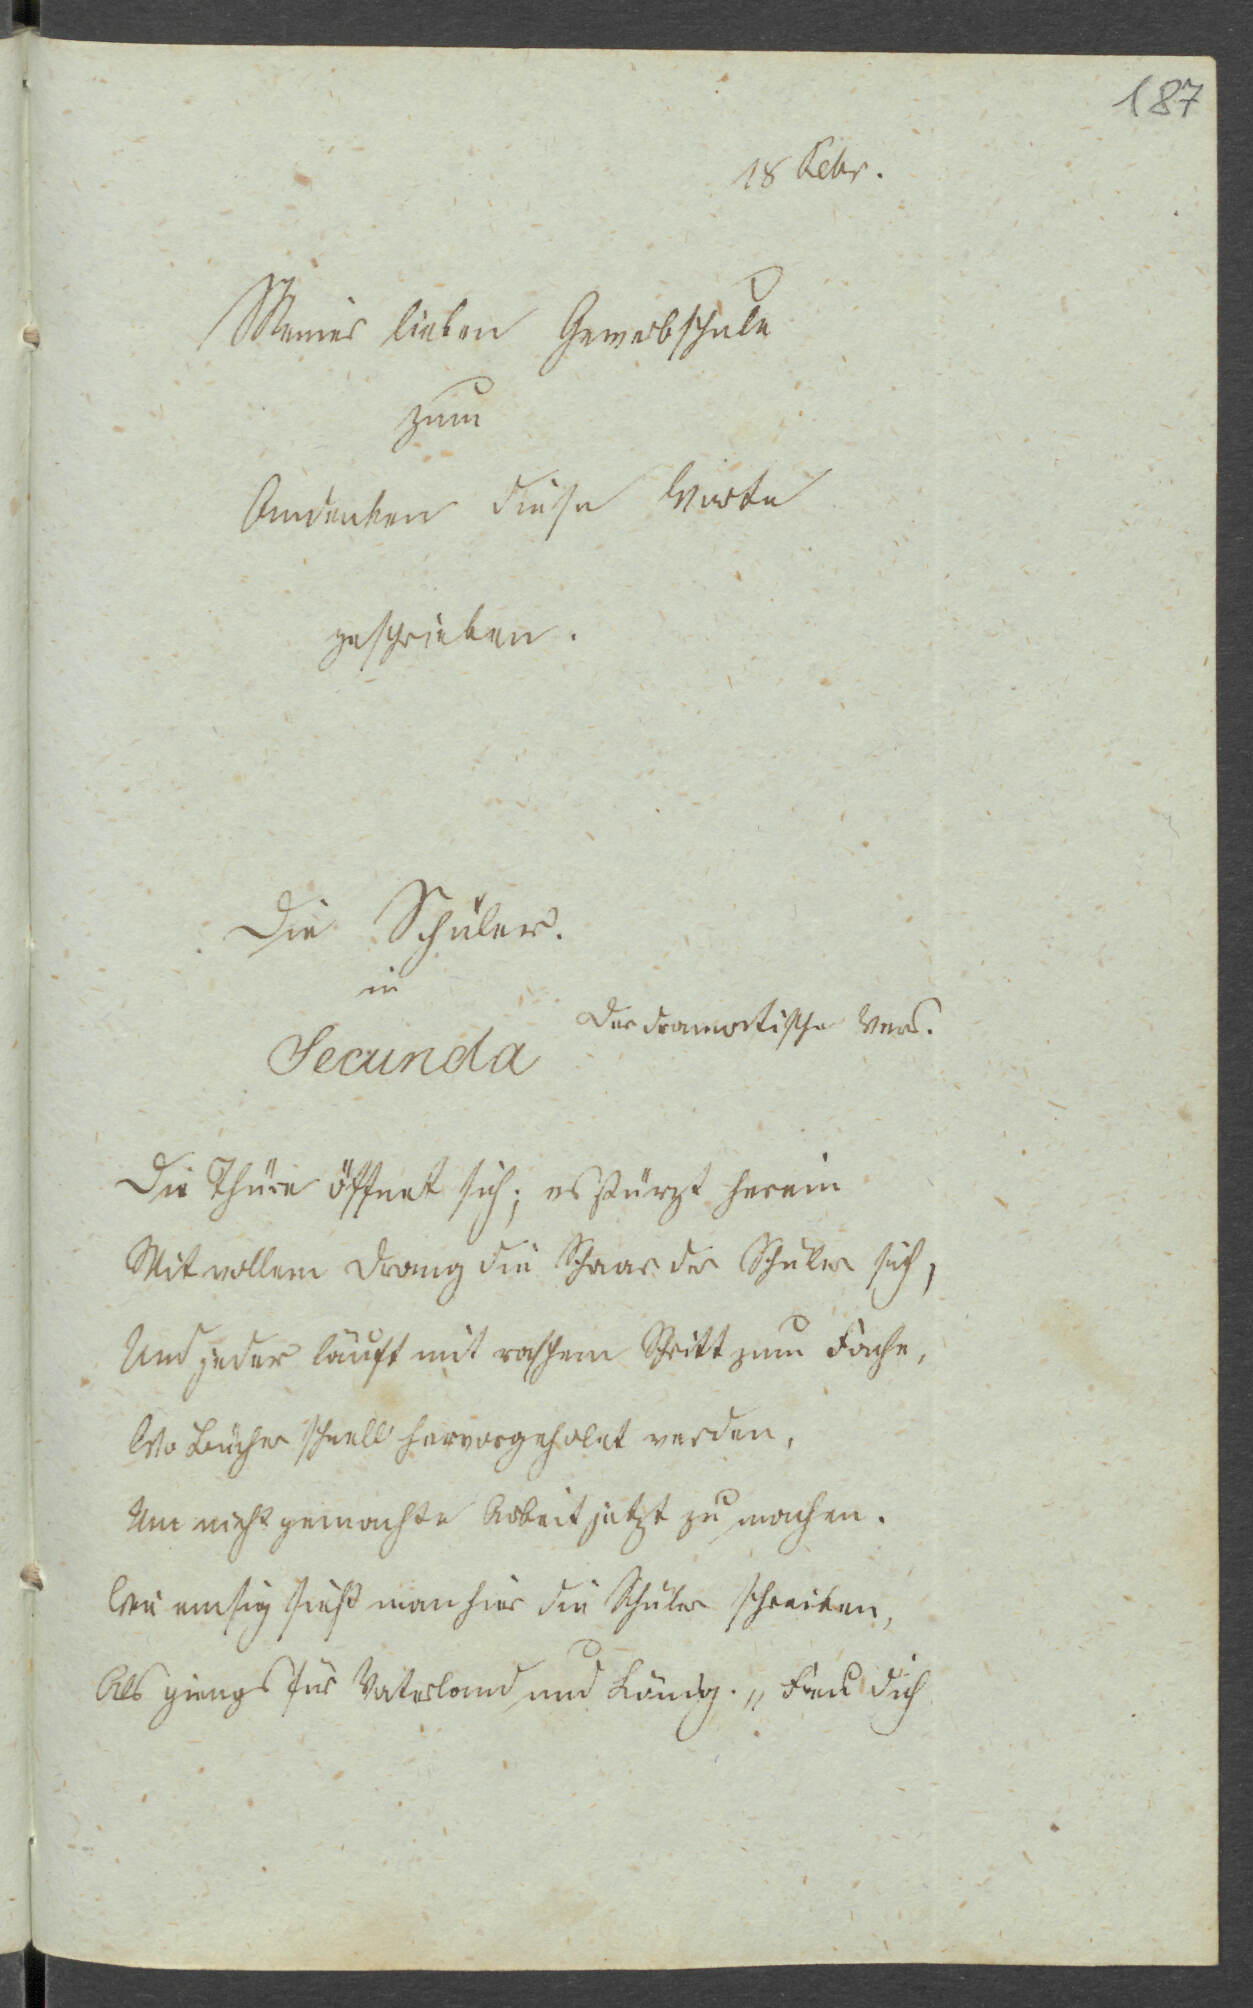 187
18 Febr.
Meiner lieben Gewerbschule
zum
Andenken diese Worte
geschrieben.
Die Schüler.
in
Der dramatische Vers.
Secunda
Die Thüre öffnet sich; es stürzt herein
Mit vollem Drang die Schaar der Schüler sich,
Und jeder läuft mit raschem Schritt zum Fache,
Wo Bücher schnell hervorgeholet werden,
Um nicht gemachte Arbeit jetzt zu machen.
Wie emsig sieht man hier die Schüler schreiben,
Als giengs für Vaterland und König. „ Freu dich